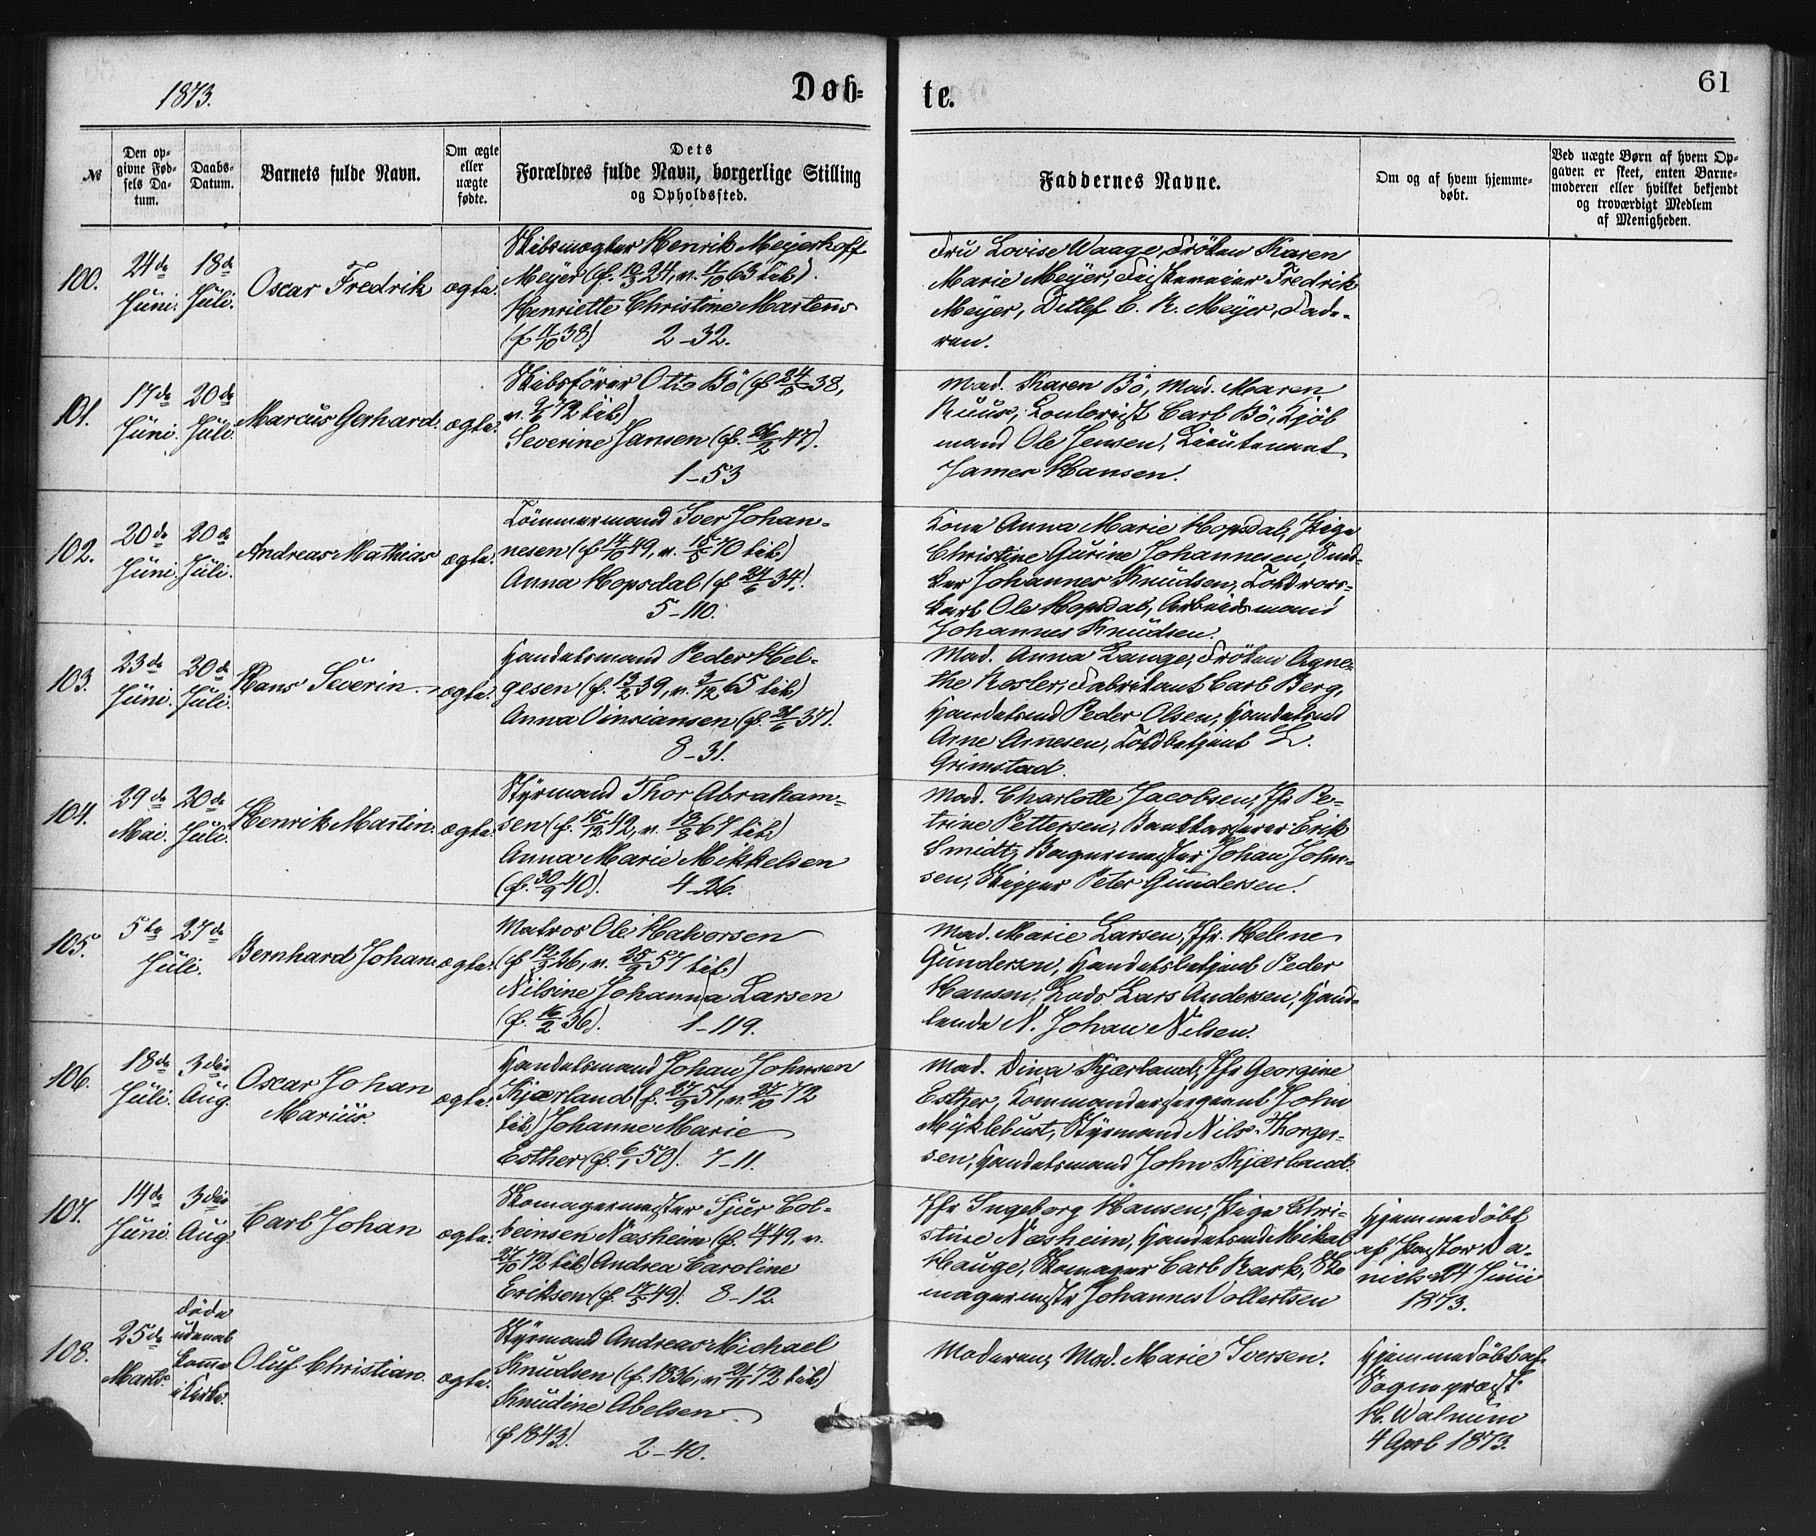 1873.
Døb-
te.
61
№
Den op-
givne Fød-
sels Da-
tum.
Daabs-
Datum.
Barnets fulde Navn.
Om ægte
eller
uægte
fødte.
Dets
Forældres fulde Navn, borgerlige Stilling
og Opholdssted.
Faddernes Navne.
Om og af hvem hjemme-
døbt.
Ved uægte Børn af hvem Op-
gaven er skeet, enten Barne-
moderen eller hvilket bekjendt
og troværdigt Medlem
af Menigheden.
100.
24de
Juni.
18de
Juli.
Oscar Fredrik
ægte.
Skibsmægler Henrik Meyerhoff
Meyer (f. 10/3 24, v. 4/10 63 tilb).
Henriette Christine Martens
(f 11/10 38) 2-32.
Fru Lovise Waage, Fröken Karen
Marie Meyer, Fredrik
Meyer, Ditlef C. R. Meyer, Fade-
ren.
101.
17de
Juni.
20de
Juli.
Marcus Gerhard.
ægte.
Skibsförer Otto Bö (f 24/5 38,
v. 9/6 72 tilb)
Severine Jansen (f. 26/2 47).
1-53
Mad. Karen Bö, Mad. Maren
Ruus, Contorist Carl Bö, Kjöb
mand Ole Jensen, Lieutenant
James Hansen.
102.
20de
Juni.
20de
Juli.
Andreas Mathias
ægte.
Tömmermand Iver Johan-
nesen (f 14/10 49, v. 15/5 70 tilb)
Anna Hopsdal (f 24/6 34).
5-110.
Kone Anna Marie Hopsdal, Pige
Christine Gurine Johannesen, Sned-
ker Johannes Knudsen, Toldvors-
karl Ole Hopsdal, Arbeidsmand
Johannes Knudsen.
103.
23de
Juni.
20de
Juli.
Hans Severin
ægte.
Handelsmand Peder Hel-
gesen (f. 13/2 39, v. 3/12 65 tilb)
Anna Vinsiansen (f. 21/6 37).
8-31.
Mad. Anna Lange, Fröken Agne-
the Kesler, Fabrikant Carl Berg,
Handelsmd Peder Olsen, Handelsmd
Arne Arnesen, Toldbetjent L.
Grimstad.
104.
29de
Mai.
20de
Juli.
Henrik Martin.
ægte.
Styrmand Thor Abraham-
sen (f. 15/12 42, v. 13/8 67 tilb)
Anna Marie Mikkelsen
(f. 30/9 40). 4-26.
Mad. Charlotte Jacobsen, Jfr Pe-
trine Pettersen, Bankkasserer Erik
Smidt, Bagermester Johan John-
sen, Skipper Peter Gundersen.
105.
5te
Juli.
27de
Bernhard Johan.
ægte.
Matros Ole Halvorsen
(f 12/3 26, v. 25/9 57 tilb)
Nilsine Johanna Larsen
(f. 16/2 36). 1-119.
Mad. Marie Larsen, Jfr. Helene
Gundersen, Handelsbetjent Peder
Hansen, Lods Lars Andersen, Hand-
lende N. Johan Nilsen.
106.
18de
Juli.
3die
Aug.
Oscar Johan
Marius.
ægte.
Handelsmand Johan Johnsen
Kjærland (f. 27/9 51, v. 27/10 72
tilb) Johanne Marie
Esther (f. 6/1 50). 7-11.
Mad. Dina Kjærland, Jfr Georgine
Esther, Kommandersergeant John
Myklebust, Styrmand Nils Thorger-
sen, Handelsmand John Kjærland.
107.
14de
Juni.
3die
Aug.
Carl Johan
ægte.
Skomagermester Sjur Col-
beinsen Næsheim (f. 4/4 49, v.
27/10 72 tilb) Andrea Caroline
Eriksen (f. 17/5 49). 8-12.
Jfr Ingeborg Hansen, Pige Chri-
stine Næsheim, Handelsmd Mikal
Hauge, Skomager Carl Rask, Sko
magermestr Johannes Vollertsen
Hjemmedøbt
af Pastor Da-
niels 24 Juni
1873.
108.
25de
Marts.
døde
udenat
komme
i Kirke.
Oluf Christian.
ægte.
Styrmand Andreas Michael
Knudsen (f. 1836, v 21/11 72 tilb)
Knudine Abelsen
(f 1843). 2-40.
Moderen, Mad. Marie Iversen.
Hjemmedøbt af
Sogneprest
H. Walnum
4 April 1873.